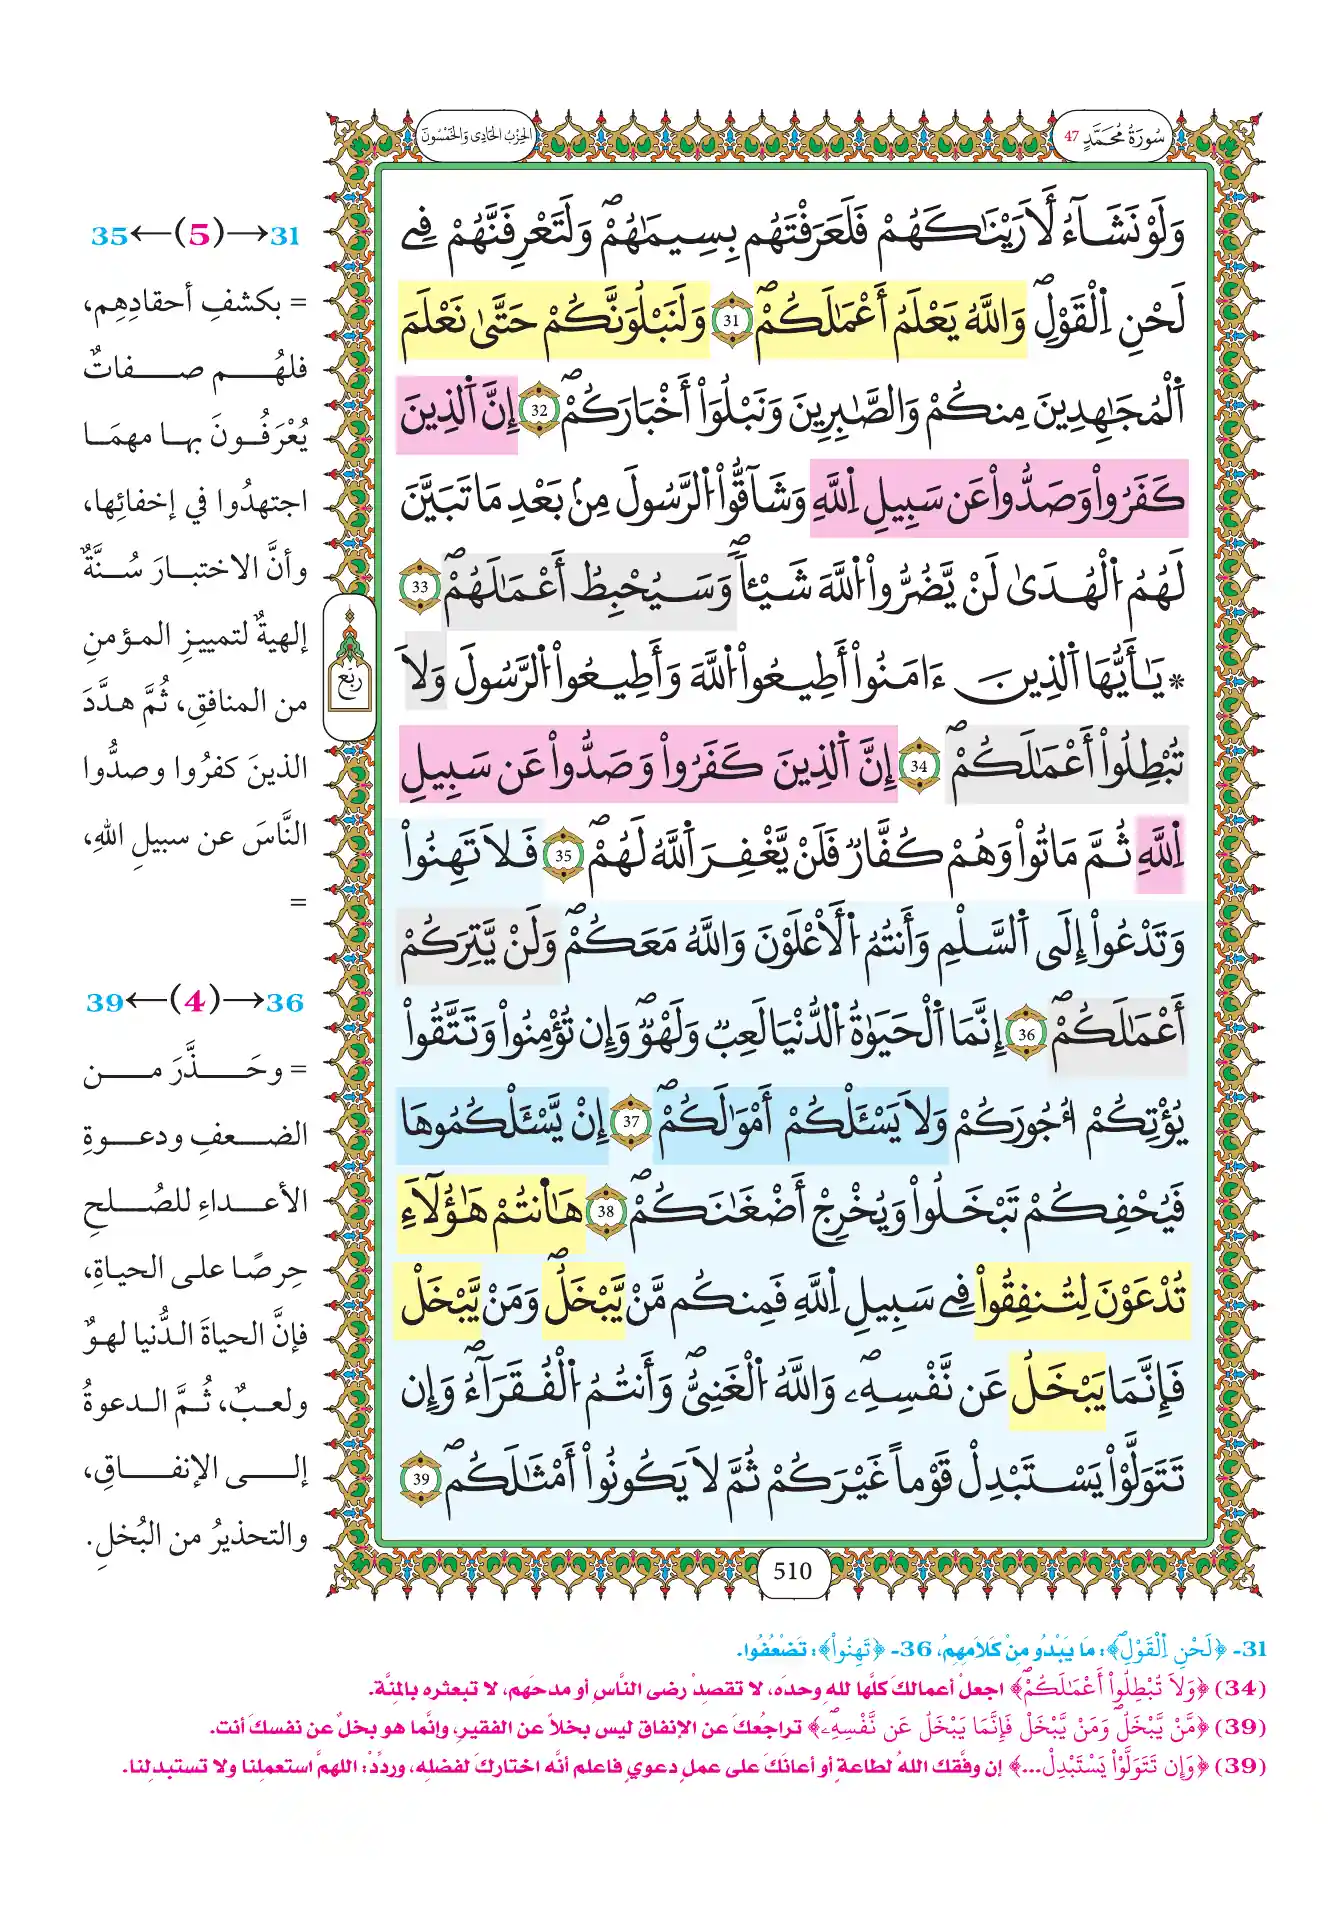 سُورَةُ مُحَمَّدٍ 47
الحِزْبُ الحَادِي وَالخَمْسُونَ
وَلَوْ نَشَآءُ لَأَرَيْنَٰكَهُمْ فَلَعَرَفْتَهُم بِسِيمَٰهُمْۖ وَلَتَعْرِفَنَّهُمْ فِے
لَحْنِ اِ۬لْقَوْلِۖ وَاللَّهُ يَعْلَمُ أَعْمَٰلَكُمْۖ 31 وَلَنَبْلُوَنَّكُمْ حَتَّىٰ نَعْلَمَ
اَ۬لْمُجَٰهِدِينَ مِنكُمْ وَالصَّٰبِرِينَ وَنَبْلُوَاْ أَخْبَارَكُمْۖ 32 إِنَّ اَ۬لذِينَ
كَفَرُواْ وَصَدُّواْ عَن سَبِيلِ اِ۬للَّهِ وَشَآقُّواْ اُ۬لرَّسُولَ مِنۢ بَعْدِ مَا تَبَيَّنَ
لَهُمُ اُ۬لْهُدَىٰ لَنْ يَّضُرُّواْ اُ۬للَّهَ شَيْـٔاٗۖ وَسَيُحْبِطُ أَعْمَٰلَهُمْۖ 33
* يَٰأَيُّهَا اَ۬لذِينَ ءَامَنُواْ أَطِيعُواْ اُ۬للَّهَ وَأَطِيعُواْ اُ۬لرَّسُولَ وَلَا
تُبْطِلُواْ أَعْمَٰلَكُمْۖ 34 إِنَّ اَ۬لذِينَ كَفَرُواْ وَصَدُّواْ عَن سَبِيلِ
اِ۬للَّهِ ثُمَّ مَاتُواْ وَهُمْ كُفَّارٞ فَلَنْ يَّغْفِرَ اَ۬للَّهُ لَهُمْۖ 35 فَلَا تَهِنُواْ
وَتَدْعُواْ إِلَى اَ۬لسَّلْمِ وَأَنتُمُ اُ۬لْأَعْلَوْنَ وَاللَّهُ مَعَكُمْۖ وَلَنْ يَّتِرَكُمْ
أَعْمَٰلَكُمْۖ 36 إِنَّمَا اَ۬لْحَيَوٰةُ اُ۬لدُّنْيَا لَعِبٞ وَلَهْوٞۖ وَإِن تُؤْمِنُواْ وَتَتَّقُواْ
يُؤْتِكُمْ أُجُورَكُمْ وَلَا يَسْـَٔلْكُمْ أَمْوَٰلَكُمْۖ 37 إِنْ يَّسْـَٔلْكُمُوهَا
فَيُحْفِكُمْ تَبْخَلُواْ وَيُخْرِجْ أَضْغَٰنَكُمْۖ 38 هَٰأَنتُمْ هَٰؤُلَآءِ
تُدْعَوْنَ لِتُنفِقُواْ فِے سَبِيلِ اِ۬للَّهِ فَمِنكُم مَّنْ يَّبْخَلُۖ وَمَنْ يَّبْخَلْ
فَإِنَّمَا يَبْخَلُ عَن نَّفْسِهِۦۖ وَاللَّهُ اُ۬لْغَنِيُّۖ وَأَنتُمُ اُ۬لْفُقَرَآءُۖ وَإِن
تَتَوَلَّوْاْ يَسْتَبْدِلْ قَوْماً غَيْرَكُمْ ثُمَّ لَا يَكُونُواْ أَمْثَٰلَكُمۖ 39
رُبْع
510
31→(5)←35
= بكشفِ أحقادِهِم،
فلهُم صفاتٌ
يُعْرَفُونَ بها مهمَا
اجتهدُوا في إخفائِها،
وأنَّ الاختبارَ سُنَّةٌ
إلهيةٌ لتمييزِ المؤمنِ
من المنافقِ، ثُمَّ هدَّدَ
الذينَ كفرُوا وصدُّوا
النَّاسَ عن سبيلِ اللهِ،
=
36→(4)←39
= وحَذَّرَ من
الضعفِ ودعوةِ
الأعداءِ للصُلحِ
حِرصًا على الحياةِ،
فإنَّ الحياةَ الدُّنيا لهوٌ
ولعبٌ، ثُمَّ الدعوةُ
إلى الإنفاقِ،
والتحذيرُ من البُخلِ.
31- ﴿لَحْنِ اِ۬لْقَوْلِۖ﴾: مَا يَبْدُو مِنْ كَلَامِهِمُ، 36- ﴿تَهِنُواْ﴾: تَضْعُفُوا.
(34) ﴿وَلَا تُبْطِلُواْ أَعْمَٰلَكُمْۖ﴾ اجعلْ أعمالكَ كلَّها للهِ وحدَه، لا تقصدْ رضى النَّاسِ أو مدحهَم، لا تبعثره بالمِنَّة.
(39) ﴿مَّنْ يَّبْخَلُۖ وَمَنْ يَّبْخَلْ فَإِنَّمَا يَبْخَلُ عَن نَّفْسِهِۦۖ﴾ تراجُعكَ عن الإنفاقِ ليس بخلاً عن الفقيرِ، وإنَّما هو بخلٌ عن نفسكَ أنت.
(39) ﴿وَإِن تَتَوَلَّوْاْ يَسْتَبْدِلْ...﴾ إن وفَّقك اللهُ لطاعةٍ أو أعانَكَ على عملٍ دعويٍ فاعلم أنَّه اختاركَ لفضلِه، وردِّدْ: اللهمَّ استعملِنا ولا تستبدلِنا.